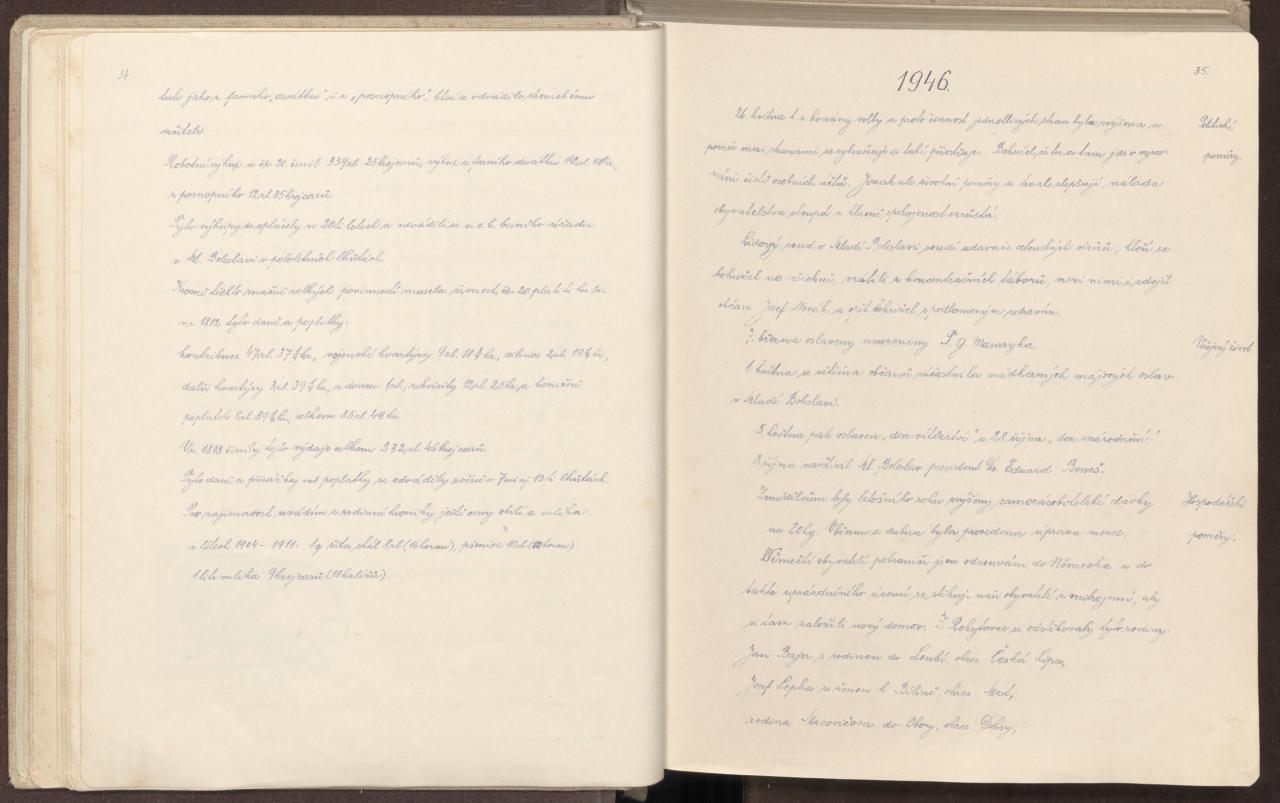 34
tak jako z farního „desátku“ i z „posnopného“, který se odvádělo
učiteli.
Robotní výkup u čp. 20. činil 339 zl. 25 krejcarů, výkup z farního desátku 142 zl. 50 kr.,
z posnopného 12 zl. 35 krejcarů.
Tyto výkupy se splácely ve 20ti letech a odváděli se u c. k. berního úřadu
v Ml. Boleslavi v pololetních lhůtách.
Kromě těchto značně velkých povinností musela živnost čp. 20. platiti
v r. 1812 tyto daně a poplatky:
kontribuce 47 zl. 37 kr., vojenské kvartýry 9 zl. 18 kr., sibnice 2 zl. 19 kr.,
další kvartýry 3 zl. 39 kr., z domu 1 zl., rekvisity 12 zl. 25 kr. a konečně
poplatek 8 zl. 89 kr., celkem 85 zl. 49 kr.
V r. 1818 činily tyto výdaje celkem 232 zl. 46 krejcarů.
Tyto daně a poplatky se odváděly ročně v 7mi až 13ti lhůtách.
Pro zajímavost uvádím z rodinné kroniky ještě ceny obilí a mléka
v letech 1904 – 1911: 1 q žita stál 8 zl. (16 korun), pšenice 10 zl. (20 korun)
1 litr mléka 9 krejcarů (18 haléřů).
35.
1946.
26. května t. r. konány volby a proto činnost jednotlivých stran byla zvýšena a
Politické
poměry.
poměr mezi stranami se vyhraňuje a také přiostřuje. Bohužel, že tu a tam jde o vyrov-
nání účtů osobních účtů. Jinak ale životní poměry se trvale zlepšují, nálada
obyvatelstva stoupá a klidně spokojenost vzrůstá.
Lidový soud v Mladé Boleslavi soudí udavače vězňů, kteří se
bohužel ne všichni, vrátili z koncentračních táborů, mezi nimi i zdejší
občan Josef Novák, a opět bohužel s podlomeným zdravím.
7. března oslaveny narozeniny T. G. Masaryka.
Veřejný život
1. května se většina občanů účastnila nádherných májových oslav
v Mladé Boleslavi.
5. května pak oslaven „den vítězství“ a 28. října „den znárodnění“.
8. října navštívil Ml. Boleslav president Dr. Eduard Beneš.
Zemědělcům byly letošního roku zvýšeny samozásobitelské dávky
Hospodářské
poměry.
na 20 kg. V březnu a dubnu byla provedena úprava meze.
Němečtí obyvatelé pohraničí jsou odsunováni do Německa a do
takto uprázdněného území se stěhují naši obyvatelé z vnitrozemí, aby
si tam založili nový domov. Z Rohytovce se odstěhovaly tyto rodiny:
Jan Bajer s rodinou do Loubí, okres Česká Lípa,
Josef Lepka se ženou k Bílině, okres Most,
rodina Macovičova do Obory, okres Doksy,